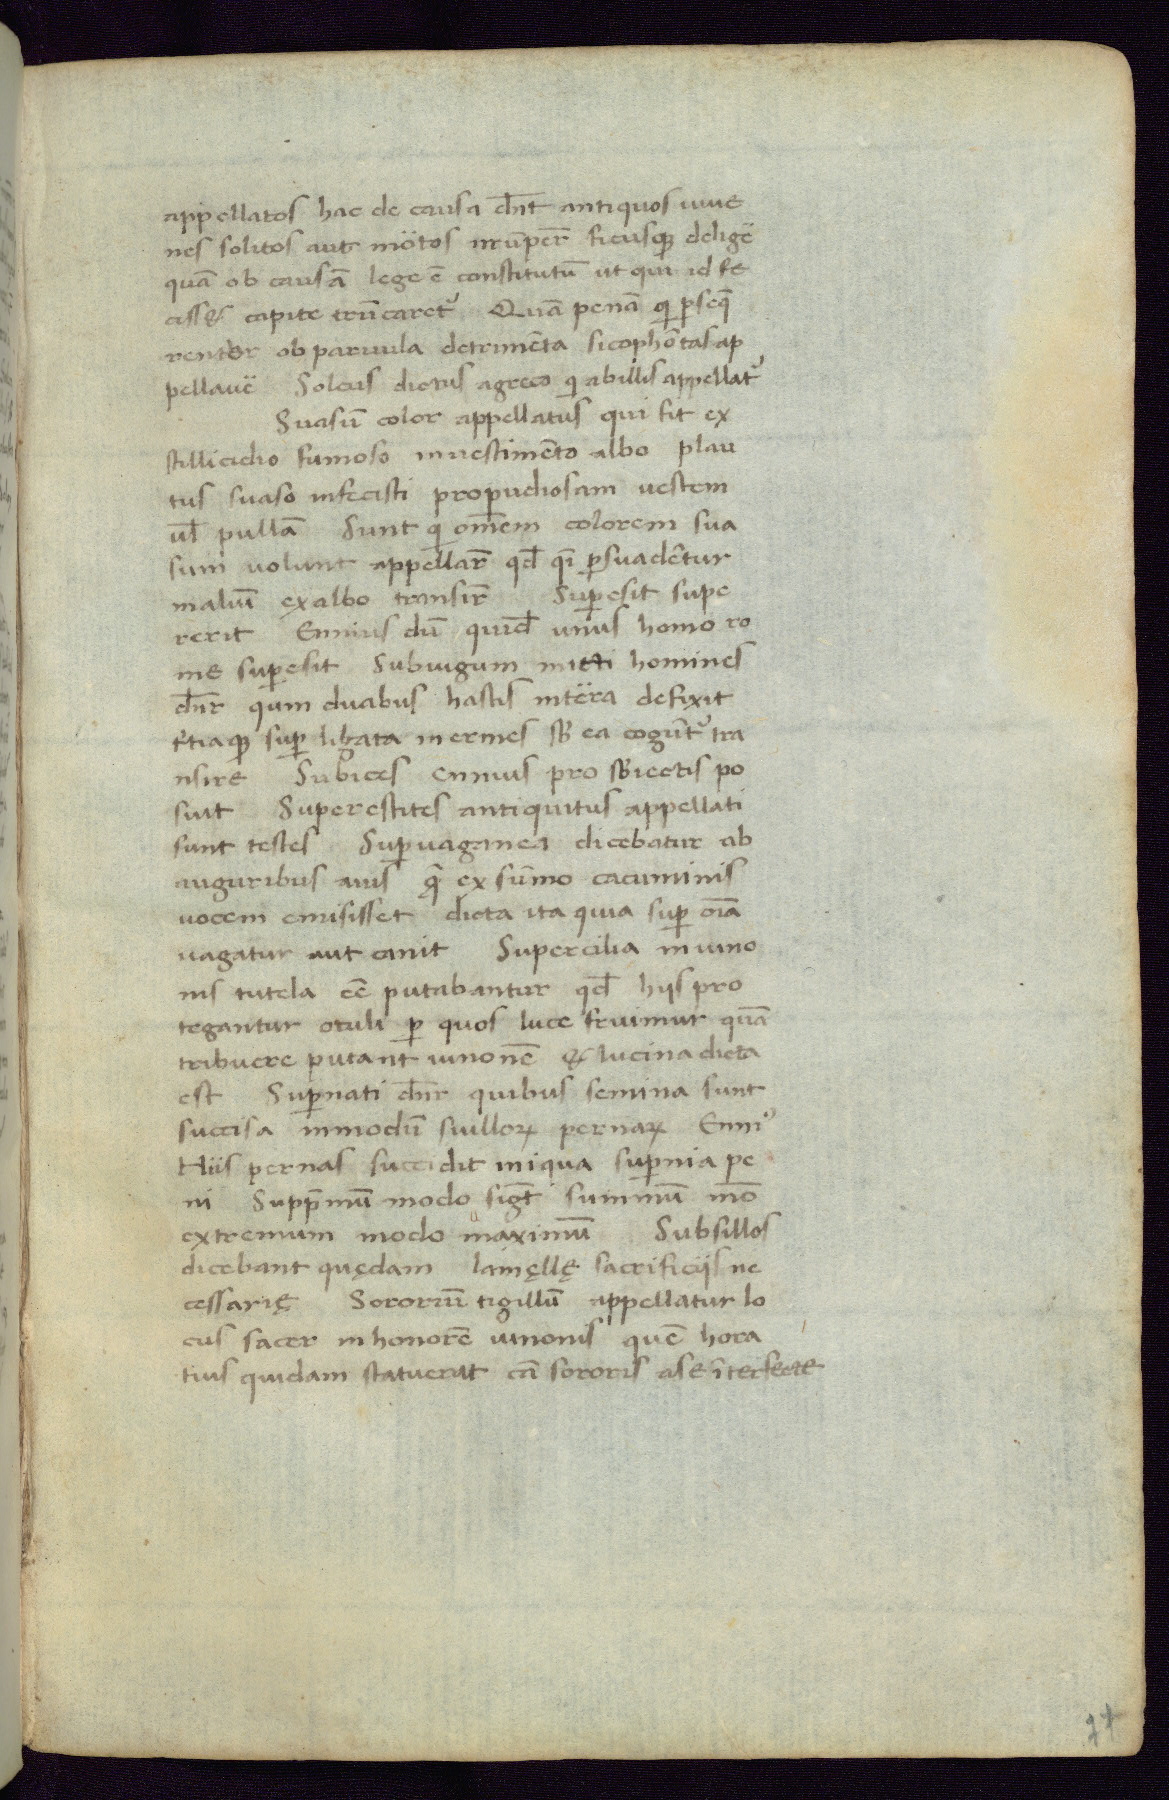 appellatos hac de causa dn̄t antiquos iuue
nes solitos aut mo̎tos irrūper̄ ficusqꝫ delige̎
quā ob causā lege ē constitutū ut qui id fe
cissꝫ capite trūcaret᷑ Quā penā qͥ ꝑseq̄
rentur ob paruula detrimēta sicophōtas ap
pellaue̎ Soleus dictus agreco qͥ abillis appellat᷑
Suasū color appellatus qui fit ex
stillicidio fumoso inuestimēto albo plau
tus suaso infecisti propudiosam uestem
ul̄ pullā Sunt qͥ om̄em colorem sua
sum volunt appellar̄ qd̄ qi̅ ꝑsuadētur
inaliū ex albo transir̄ Suꝑesit supe
rerit Ennius dū quid̄ unus homo ro
me suꝑesit Subiugum mitti homines
dn̄r qum duabus hastis inte̎ra defixit
t̄tiaqꝫ suꝑ ligata inermes sƀ ea cogūt᷑ tra
nsire Subices ennius pro sƀiectis po
suit Superestites antiquitus appellati
sunt testes Suꝑuaganea dicebatur ab
auguribus auis q̄ ex sūmo cacuminis
uocem emisisset dicta ita quia suꝑ oīa
uagatur aut canit Supercilia in iuno
nis tutela eē putabantur qd̄ hijs pro
tegantur oculi ꝑ quos luce fruimur quā
tribuere putant iunonē & lucina dicta
est Suꝑnati dn̄r quibus semina sunt
succisa inmodū suilloꝝ pernaꝝ Enniꝰ
Hiis pernas succidit iniqua suꝑnia pe
ni Supp̄mū modo sigt̄ summū mō
extremum modo maximū Subsillos
dicebant quędam lamęllę sacrificijs ne
cessarię Sororiū tigillū appellatur lo
cus sacer in honorē iunonis quē hora
tius quidam statuerat cā sororis a se īterfecte
77